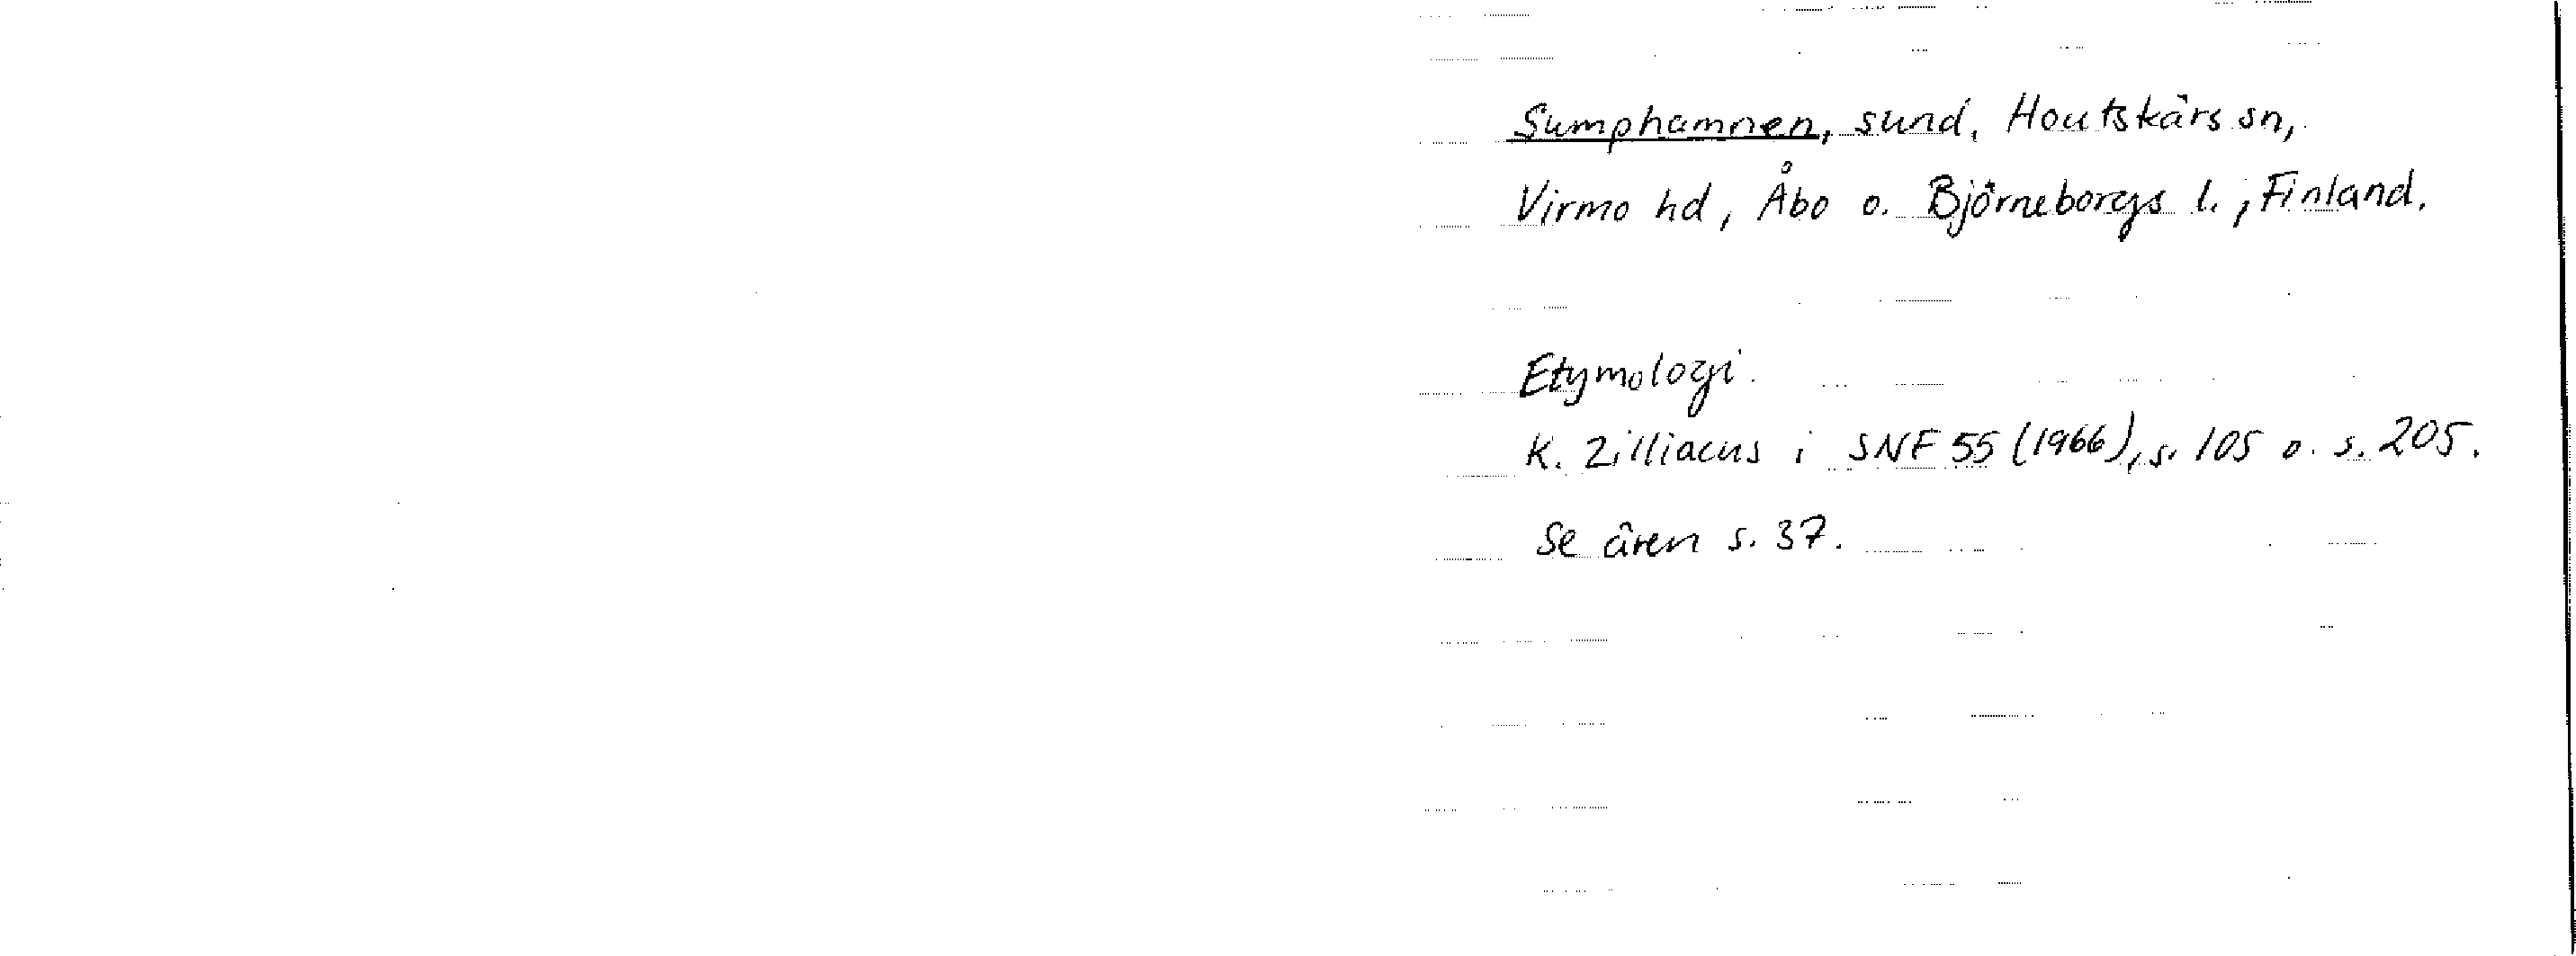 Sumphamnen, sund, Houtskärs sn,
Virmo hd, Åbo o. Björneborgs l., Finland.
Etymologi.
K. Zilliacus i SNF 55 (1966), s. 105 o. s. 205.
Se även s. 37.